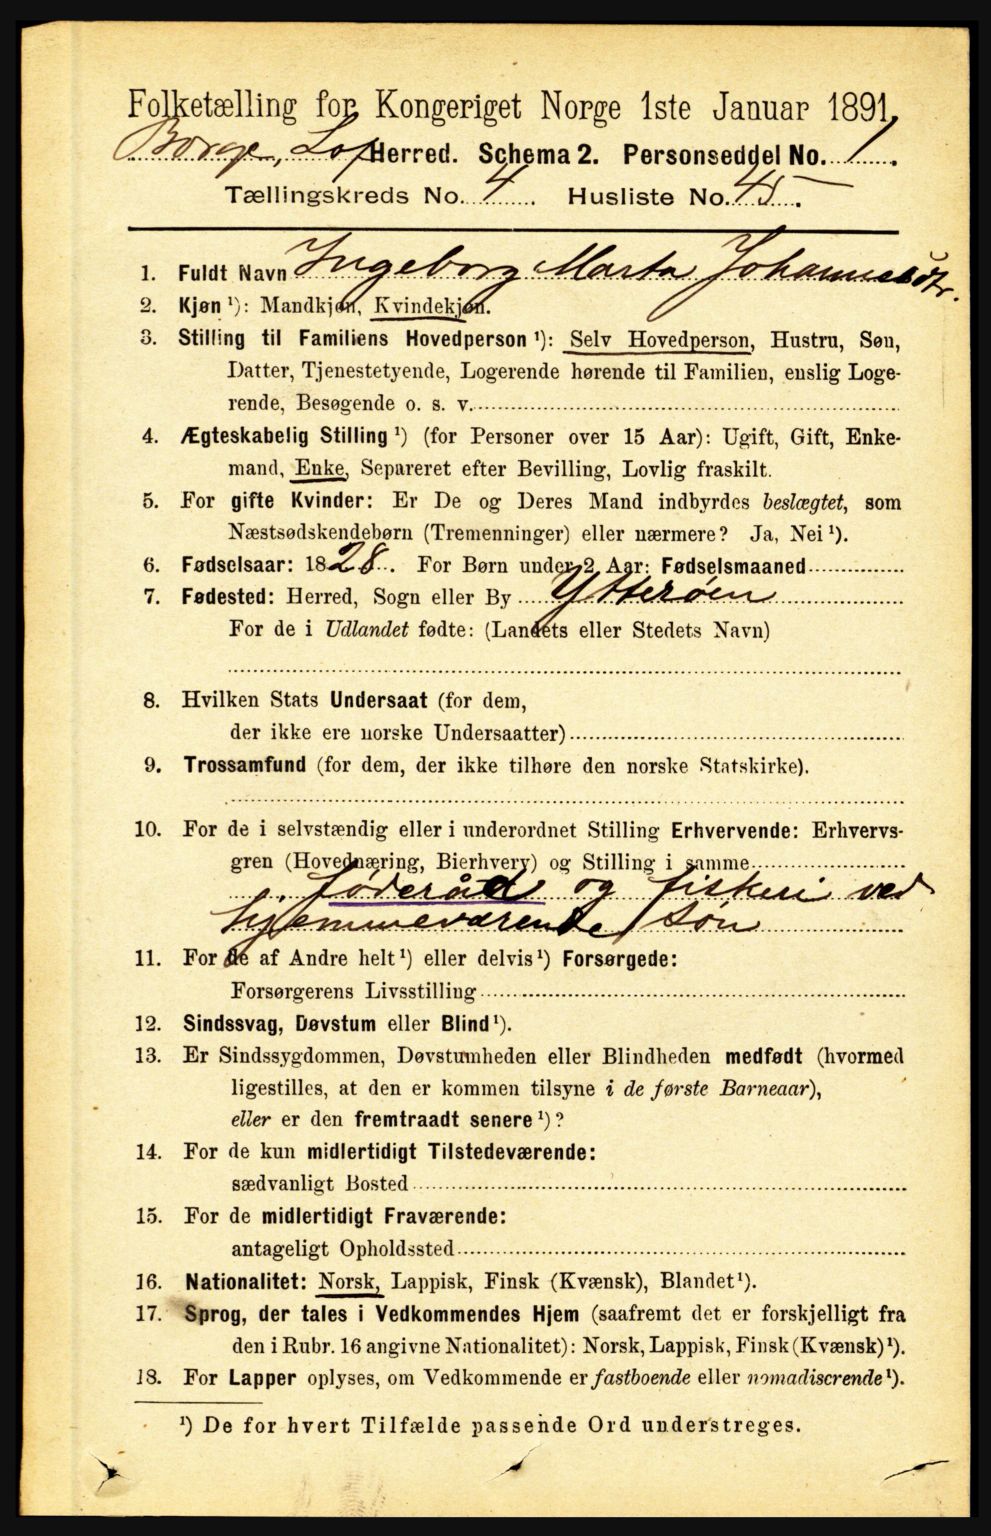 Folketælling for Kongeriget Norge 1ste Januar 1891.
Borge, Lof Herred. Schema 2. Personseddel No. 1.
Tællingskreds No. 4. Husliste No. 45.
1. Fuldt Navn Ingeborg Marta Johannesdtr.
2. Kjøn ¹): Mandkjøn, Kvindekjøn.
3. Stilling til Familiens Hovedperson ¹): Selv Hovedperson, Hustru, Søn,
Datter, Tjenestetyende, Logerende hørende til Familien, enslig Loge-
rende, Besøgende o. s. v.
4. Ægteskabelig Stilling ¹) (for Personer over 15 Aar): Ugift, Gift, Enke-
mand, Enke, Separeret efter Bevilling, Lovlig fraskilt.
5. For gifte Kvinder: Er De og Deres Mand indbyrdes beslægtet, som
Næstsødskendebørn (Tremenninger) eller nærmere? Ja, Nei ¹).
6. Fødselsaar: 1828. For Børn under 2 Aar: Fødselsmaaned
7. Fødested: Herred, Sogn eller By Ytterøen
For de i Udlandet fødte: (Landets eller Stedets Navn)
8. Hvilken Stats Undersaat (for dem,
der ikke ere norske Undersaatter)
9. Trossamfund (for dem, der ikke tilhøre den norske Statskirke).
10. For de i selvstændig eller i underordnet Stilling Erhvervende: Erhvervs-
gren (Hovednæring, Bierhverv) og Stilling i samme
føderåd og fiskeri ved
hjemmeværende søn
11. For de af Andre helt ¹) eller delvis ¹) Forsørgede:
Forsørgerens Livsstilling
12. Sindssvag, Døvstum eller Blind ¹).
13. Er Sindssygdommen, Døvstumheden eller Blindheden medfødt (hvormed
ligestilles, at den er kommen tilsyne i de første Barneaar),
eller er den fremtraadt senere ¹)?
14. For de kun midlertidigt Tilstedeværende:
sædvanligt Bosted
15. For de midlertidigt Fraværende:
antageligt Opholdssted
16. Nationalitet: Norsk, Lappisk, Finsk (Kvænsk), Blandet ¹).
17. Sprog, der tales i Vedkommendes Hjem (saafremt det er forskjelligt fra
den i Rubr. 16 angivne Nationalitet): Norsk, Lappisk, Finsk (Kvænsk) ¹).
18. For Lapper oplyses, om Vedkommende er fastboende eller nomadiserende ¹).
¹) De for hvert Tilfælde passende Ord understreges.